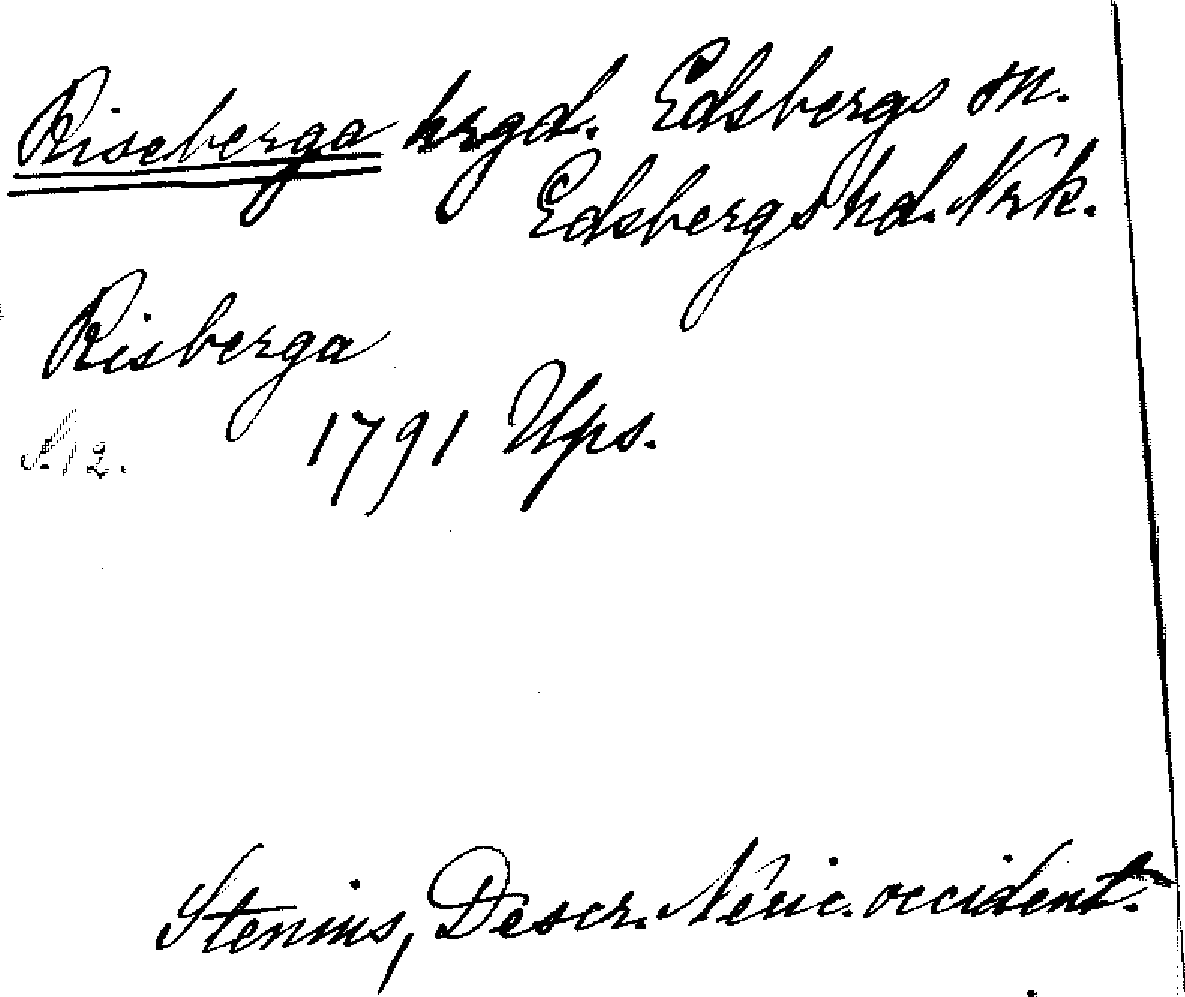 Riseberga hrgd. Edsbergs sn.
Edsbergs hd. Nrk.
Risberga
S. 12.
1791 Ups.
Stenius, Descr. Neric. occident.